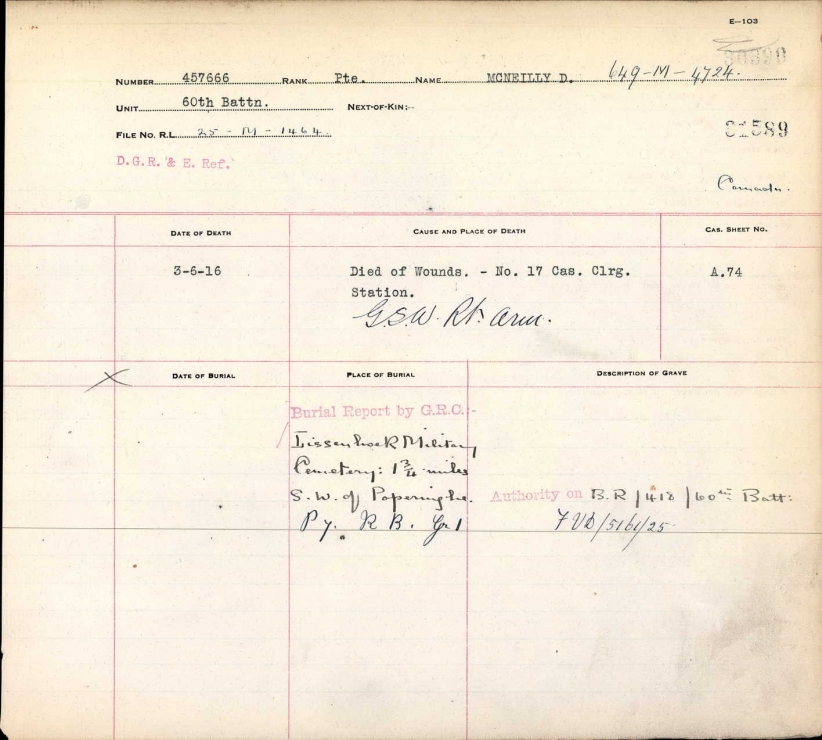 E—103
NUMBER 457666 RANK Pte. NAME MCNEILLY D. 649-M-4724.
UNIT 60th Battn. NEXT-OF-KIN:-
FILE NO. R.L. 25-M-1464.
31589
D.G.R. & E. Ref.
Canada.
DATE OF DEATH CAUSE AND PLACE OF DEATH CAS. SHEET NO.
3-6-16 Died of Wounds. - No. 17 Cas. Clrg. A.74
Station.
G.S.W. Rt. Arm.
DATE OF BURIAL PLACE OF BURIAL DESCRIPTION OF GRAVE
Burial Report by G.R.C.:-
Lissenhoek Military
Cemetery: 1 3/4 miles
S.W. of Poperinghe. Authority on B.R/418/60th Batt:
R B. Gr 1